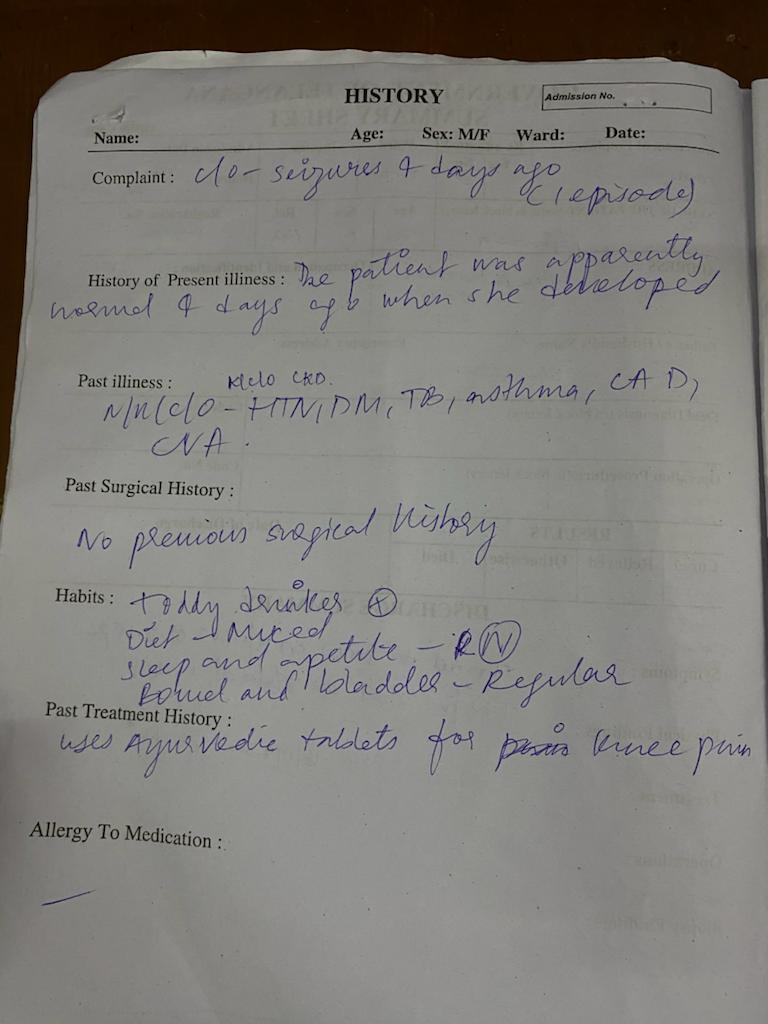 HISTORY
Admission No.
Name: Age: Sex: M/F Ward: Date:
Complaint : c/o - seizures 4 days ago
(1 episode)
History of Present illness : The patient was apparently
normal 4 days ago when she developed
Past illness : K/c/o CKD.
N/K/c/o - HTN, DM, TB, asthma, CAD,
CVA.
Past Surgical History :
No previous surgical History
Habits : toddy drinker
Diet - Mixed
sleep and apetite - N
Bowel and bladder - Regular
Past Treatment History :
uses Ayurvedic tablets for knee pain
Allergy To Medication :
—